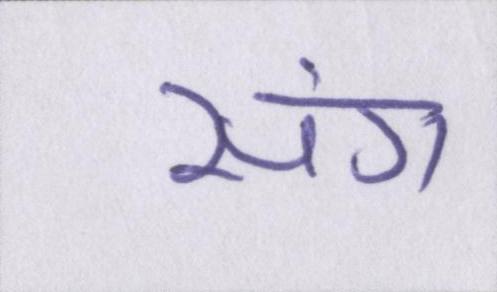 संग